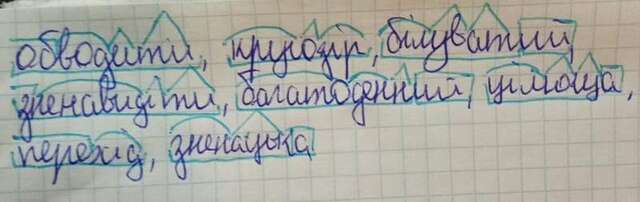 обводити, кругозір, білуватий,
зненавидіти, багатоденний, цілюща,
перехід, зненацька